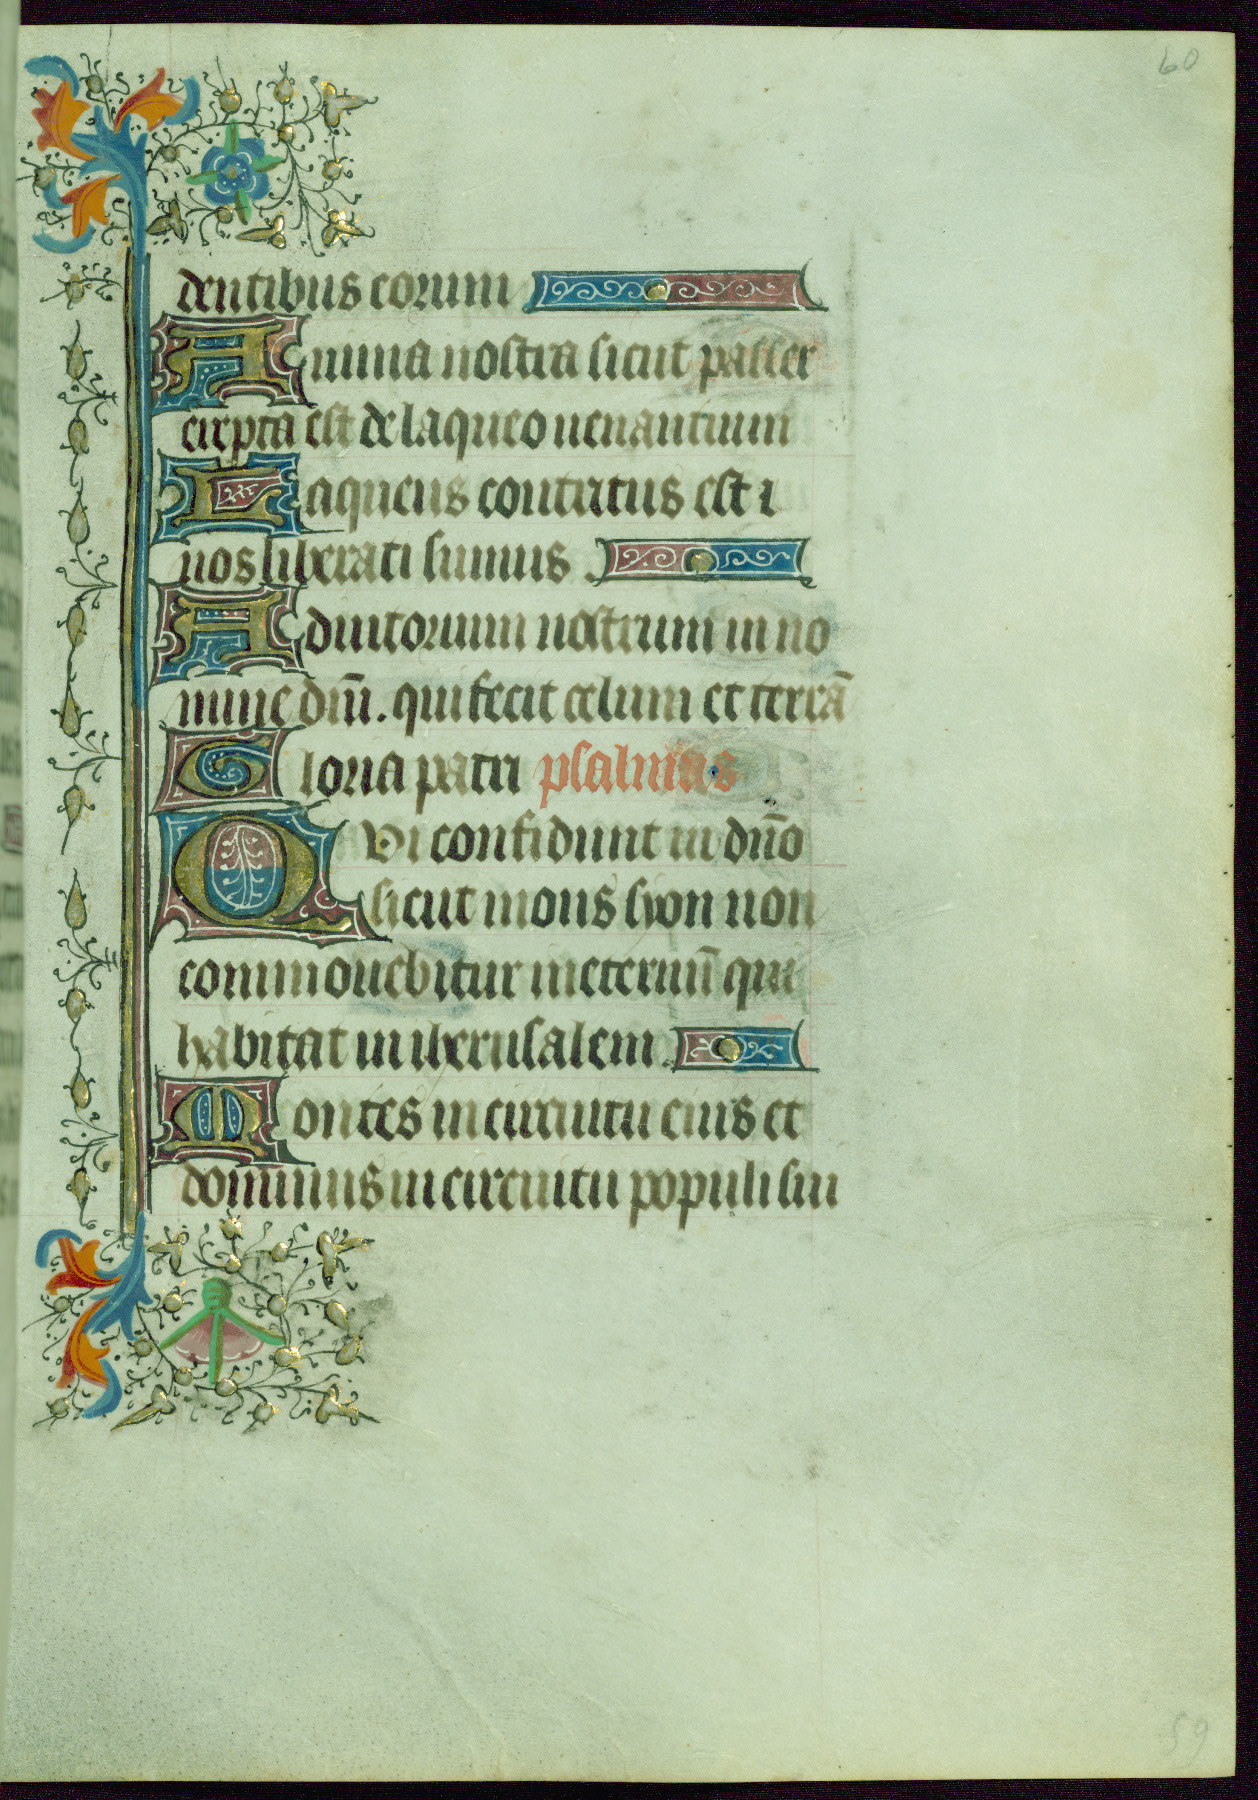 60
dentibus eorum
Anima nostra sicut passer
erepta est de laqueo uenantium
Laqueus contritus est i
nos liberati sumus.
Adiutorium nostrum in no
mine dn̄i. qui fecit celum et terrā
Gloria patri psalmus
Qui confidunt in dn̄o
sicut mons syon non
commouebitur ineternū qui
habitat in iherusalem.
Montes in circuitu eius et
dominus in circuitu populi sui
59